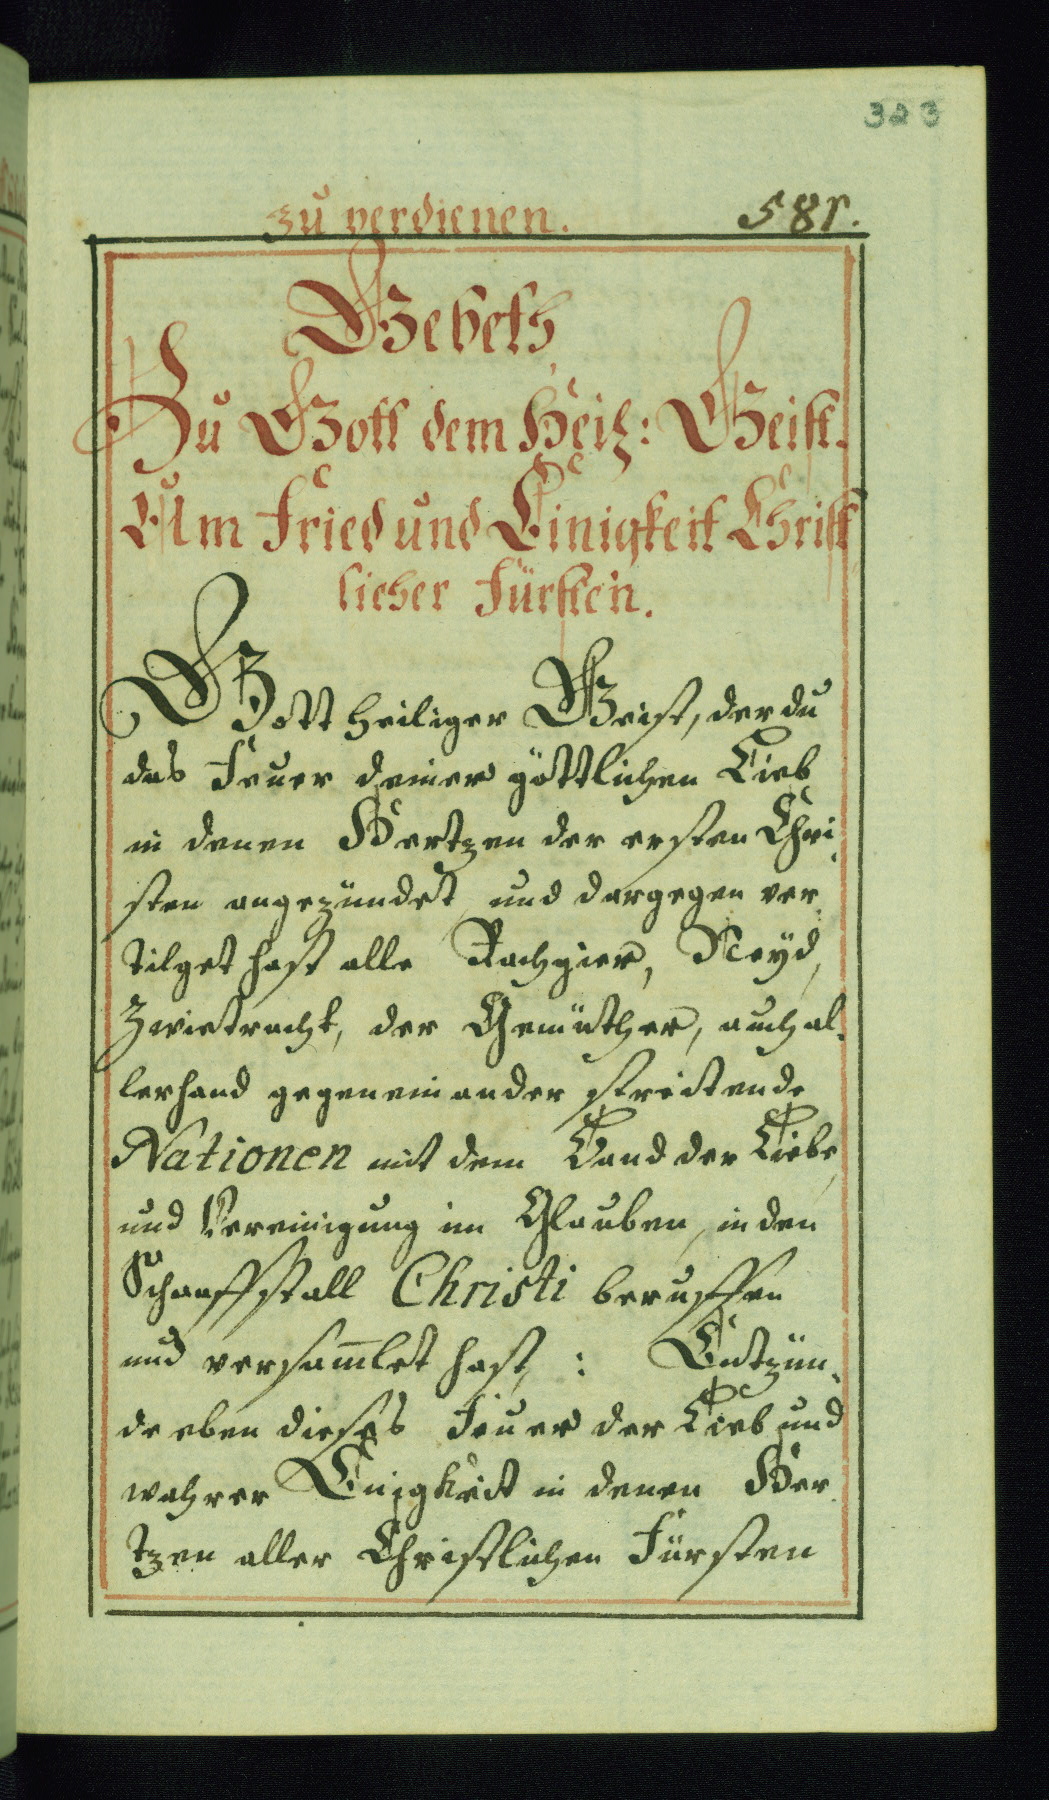 323
zu verdienen. 581.
Gebeth
Zu Gott dem Heil: Geist.
Um Fried und Einigkeit Christ
licher Fürsten.
Gott heiliger Geist, der du
das Feuer deiner göttlichen Lieb
in denen Hertzen der ersten Chri,
sten angezündet, und dargegen ver,
tilget hast alle Rachgier, Neyd,
Zwietracht, der Gemüther, auch al,
lerhand gegeneinander streitende
Nationen mit dem Band der Liebe,
und Vereinigung im Glauben, in den
Schaaffstall Christi beruffen
und versam̄let hast, : Entzün,
de eben dieses Feuer der Lieb und
wahrer Einigkeit in denen Her,
tzen aller Christlichen Fürsten